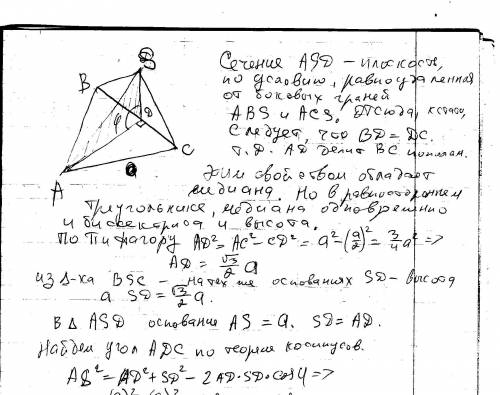 S
B
D
φ
C
A
a
Сечение ASD – плоскость,
по условию, равноудаленная
от боковых граней
ABS и ACS. Отсюда, кстати,
следует, что BD = DC.
т.д. AD делит BC пополам.
Этим свойством обладает
медиана. Но в равностороннем
треугольнике, медиана одновременно
и биссектриса и высота.
По Пифагору AD² = AC² - CD² = a² - (a/2)² = 3/4 a² =>
AD = √3/2 a
из Δ-ка BSC – на тех же основаниях SD – высота
а SD = √3/2 a.
В Δ ASD основание AS = a. SD = AD.
Найдем угол ADC по теореме косинусов.
AS² = AD² + SD² - 2AD·SD·cos φ =>